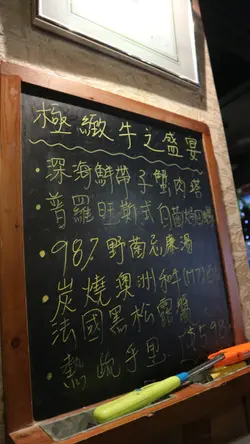 極緻牛之盛宴
·深海鮮帶子蟹肉塔
·普羅旺斯式白菌焗田螺
·98%野菌忌廉湯
·炭燒澳洲和牛(M7)
法國黑松露醬
·熱
$598